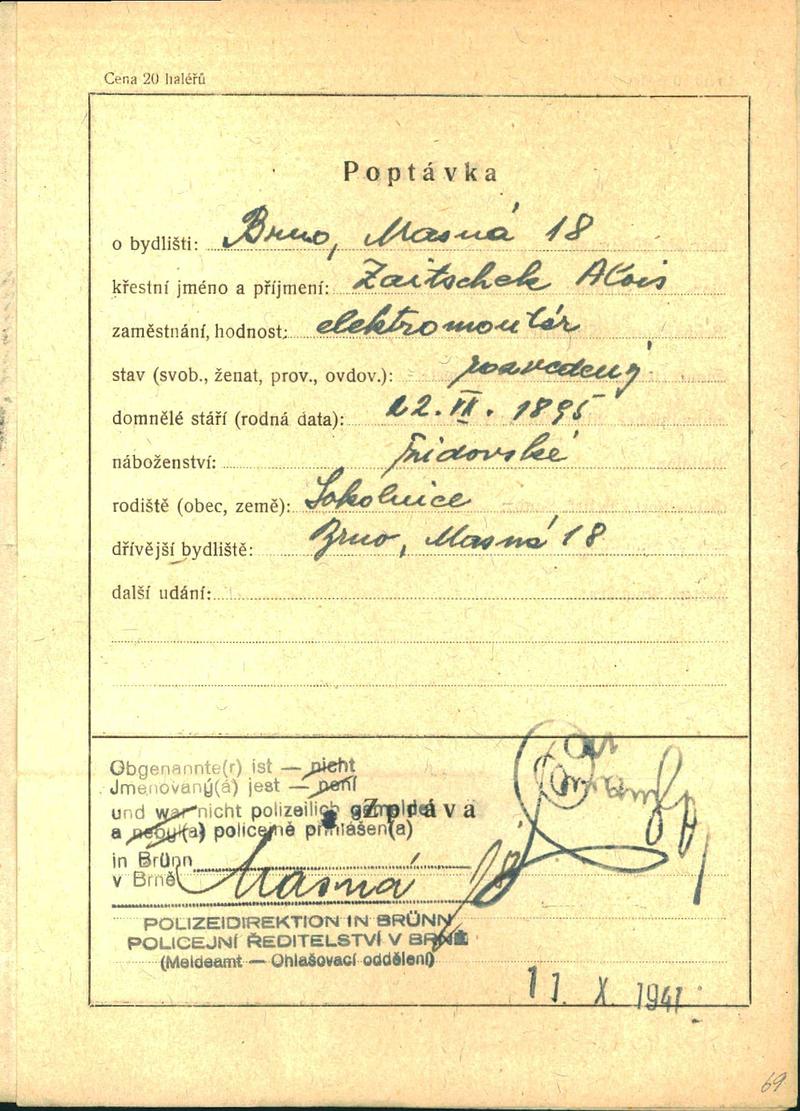 Cena 20 haléřů
Poptávka
o bydlišti: Brno, Masná 18
křestní jméno a příjmení: Zaitschek Alois
zaměstnání, hodnost: elektromontér
stav (svob., ženat, prov., ovdov.): rozvedený
domnělé stáří (rodná data): 22. 1895
náboženství: židovské
rodiště (obec, země): Sokolnice
dřívější bydliště: Brno, Masná 18
další udání:
Obgenannte(r) ist — nicht
Jmenovaný(á) jest — není
und war nicht polizeilich gemeldet
Zpráva
a nebyl(a) policejně přihlášen(a)
in Brünn
v Brně Masná
POLIZEIDIREKTION IN BRÜNN
POLICEJNÍ ŘEDITELSTVÍ V BRNĚ
(Meldeamt — Ohlašovací oddělení)
11. X. 1941
69